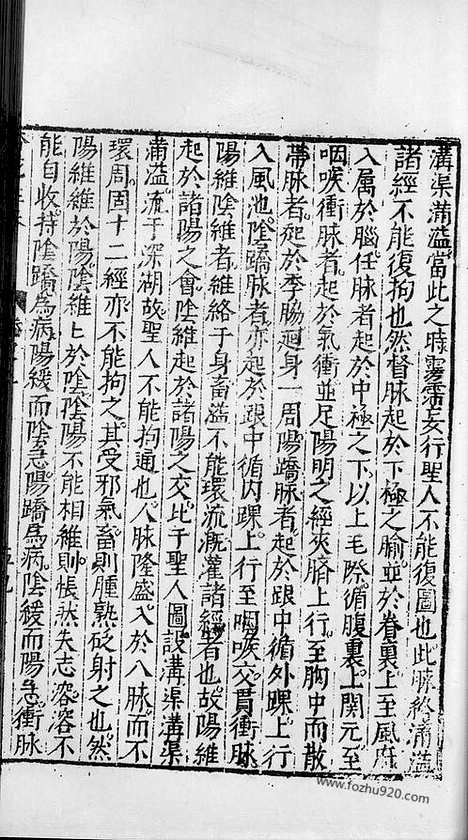 溝渠滿溢當此之時霶霈妄行聖人不能復圖也此脉絡滿溢
諸經不能復拘也然督脉起於下極之腧並於脊裏上至風府
入屬於腦任脉者起於中極之下以上毛際循腹裏上關元至
咽喉衝脉者起於氣衝並足陽明之經夾臍上行至胸中而散
帶脉者起於季脇迴身一周陽蹻脉者起於跟中循外踝上行
入風池陰蹻脉者亦起於跟中循內踝上行至咽喉交貫衝脉
陽維陰維者維絡于身畜溢不能環流溉灌諸經者也故陽維
起於諸陽之會陰維起於諸陽之交比于聖人圖設溝渠溝渠
滿溢流于深湖故聖人不能拘通也人脉隆盛入於八脉而不
環周固十二經亦不能拘之其受邪氣畜則腫熱砭射之也然
陽維維於陽陰維上於陰陰陽不能相維則悵然失志溶溶不
能自收持陰蹻爲病陽緩而陰急陽蹻爲病陰緩而陽急衝脉
www.fozhu920.com